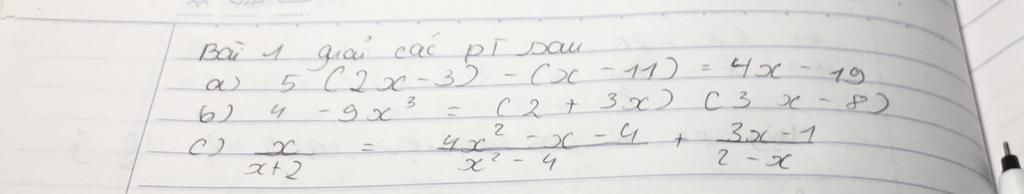 Bài 1 giải các pT sau
a) 5 (2x-3) - (x-11) = 4x-19
b) 4 - 9x³ = (2 + 3x) (3x-8)
c) x/(x+2) = (4x²-x-4)/(x²-4) + (3x-1)/(2-x)